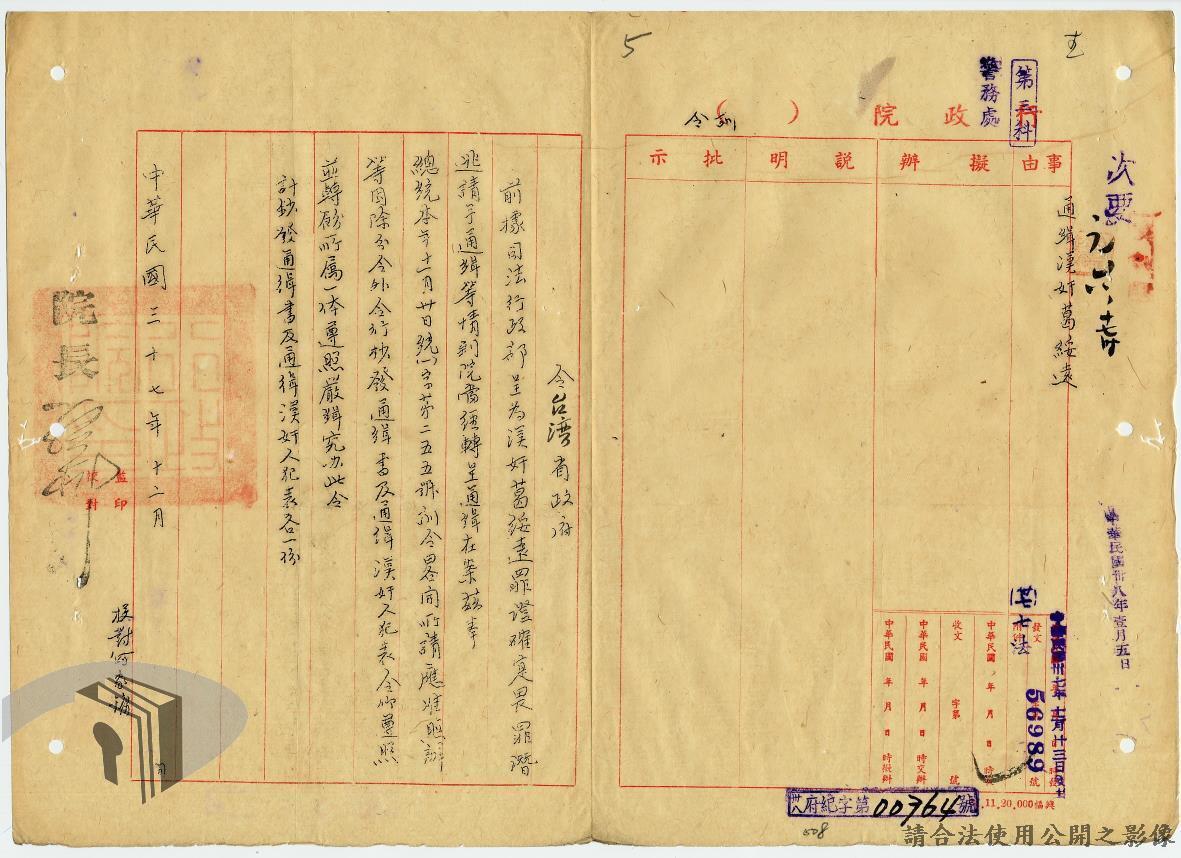 5
第二科
警務處
行政院（訓令）
事由
擬辦
說明
批示
通緝漢奸葛綏遠
次要
中華民國卅八年壹月五日
發文
56989
中華民國卅七年十二月十三日發出
七法
中華民國 年 月 日 時
收文 字第 號
中華民國 年 月 日 時交辦
中華民國 年 月 日 時擬辦
卅八府紀字第00764號
.11.20,000
508
令台灣省政府
前據司法行政部呈為漢奸葛綏遠罪證確寔畏罪潛
逃請予通緝等情到院當經轉呈通緝在案茲奉
總統本年十一月卅日統㈠字第二五五號訓令畧開所請應准照辦
等因除分令外合行抄發通緝書及通緝漢奸人犯表令仰遵照
並轉飭所属一体遵照嚴緝究办此令
計抄發通緝書及通緝漢奸人犯表各一份
中華民國三十七年十二月
院長
監印
校對
校對何
請合法使用公開之影像